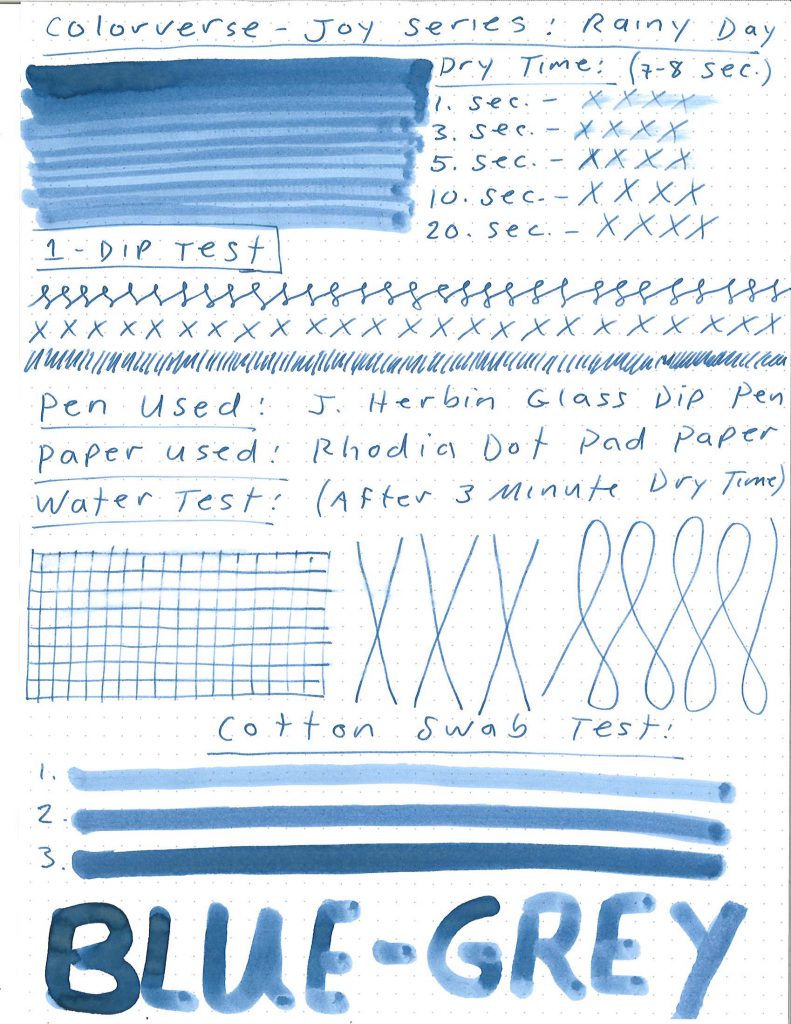 Colorverse - Joy Series: Rainy Day
Dry Time: (7-8 sec.)
1. sec. - X X X X
3. sec. - X X X X
5. sec. - X X X X
10. sec. - X X X X
20. sec. - X X X X
1 - Dip Test
X X X X X X X X X X X X X X X X X X X X X X X X X
Pen Used: J. Herbin Glass Dip Pen
Paper used: Rhodia Dot Pad Paper
Water Test: (After 3 Minute Dry Time)
X X X
Cotton Swab Test:
1.
2.
3.
BLUE-GREY